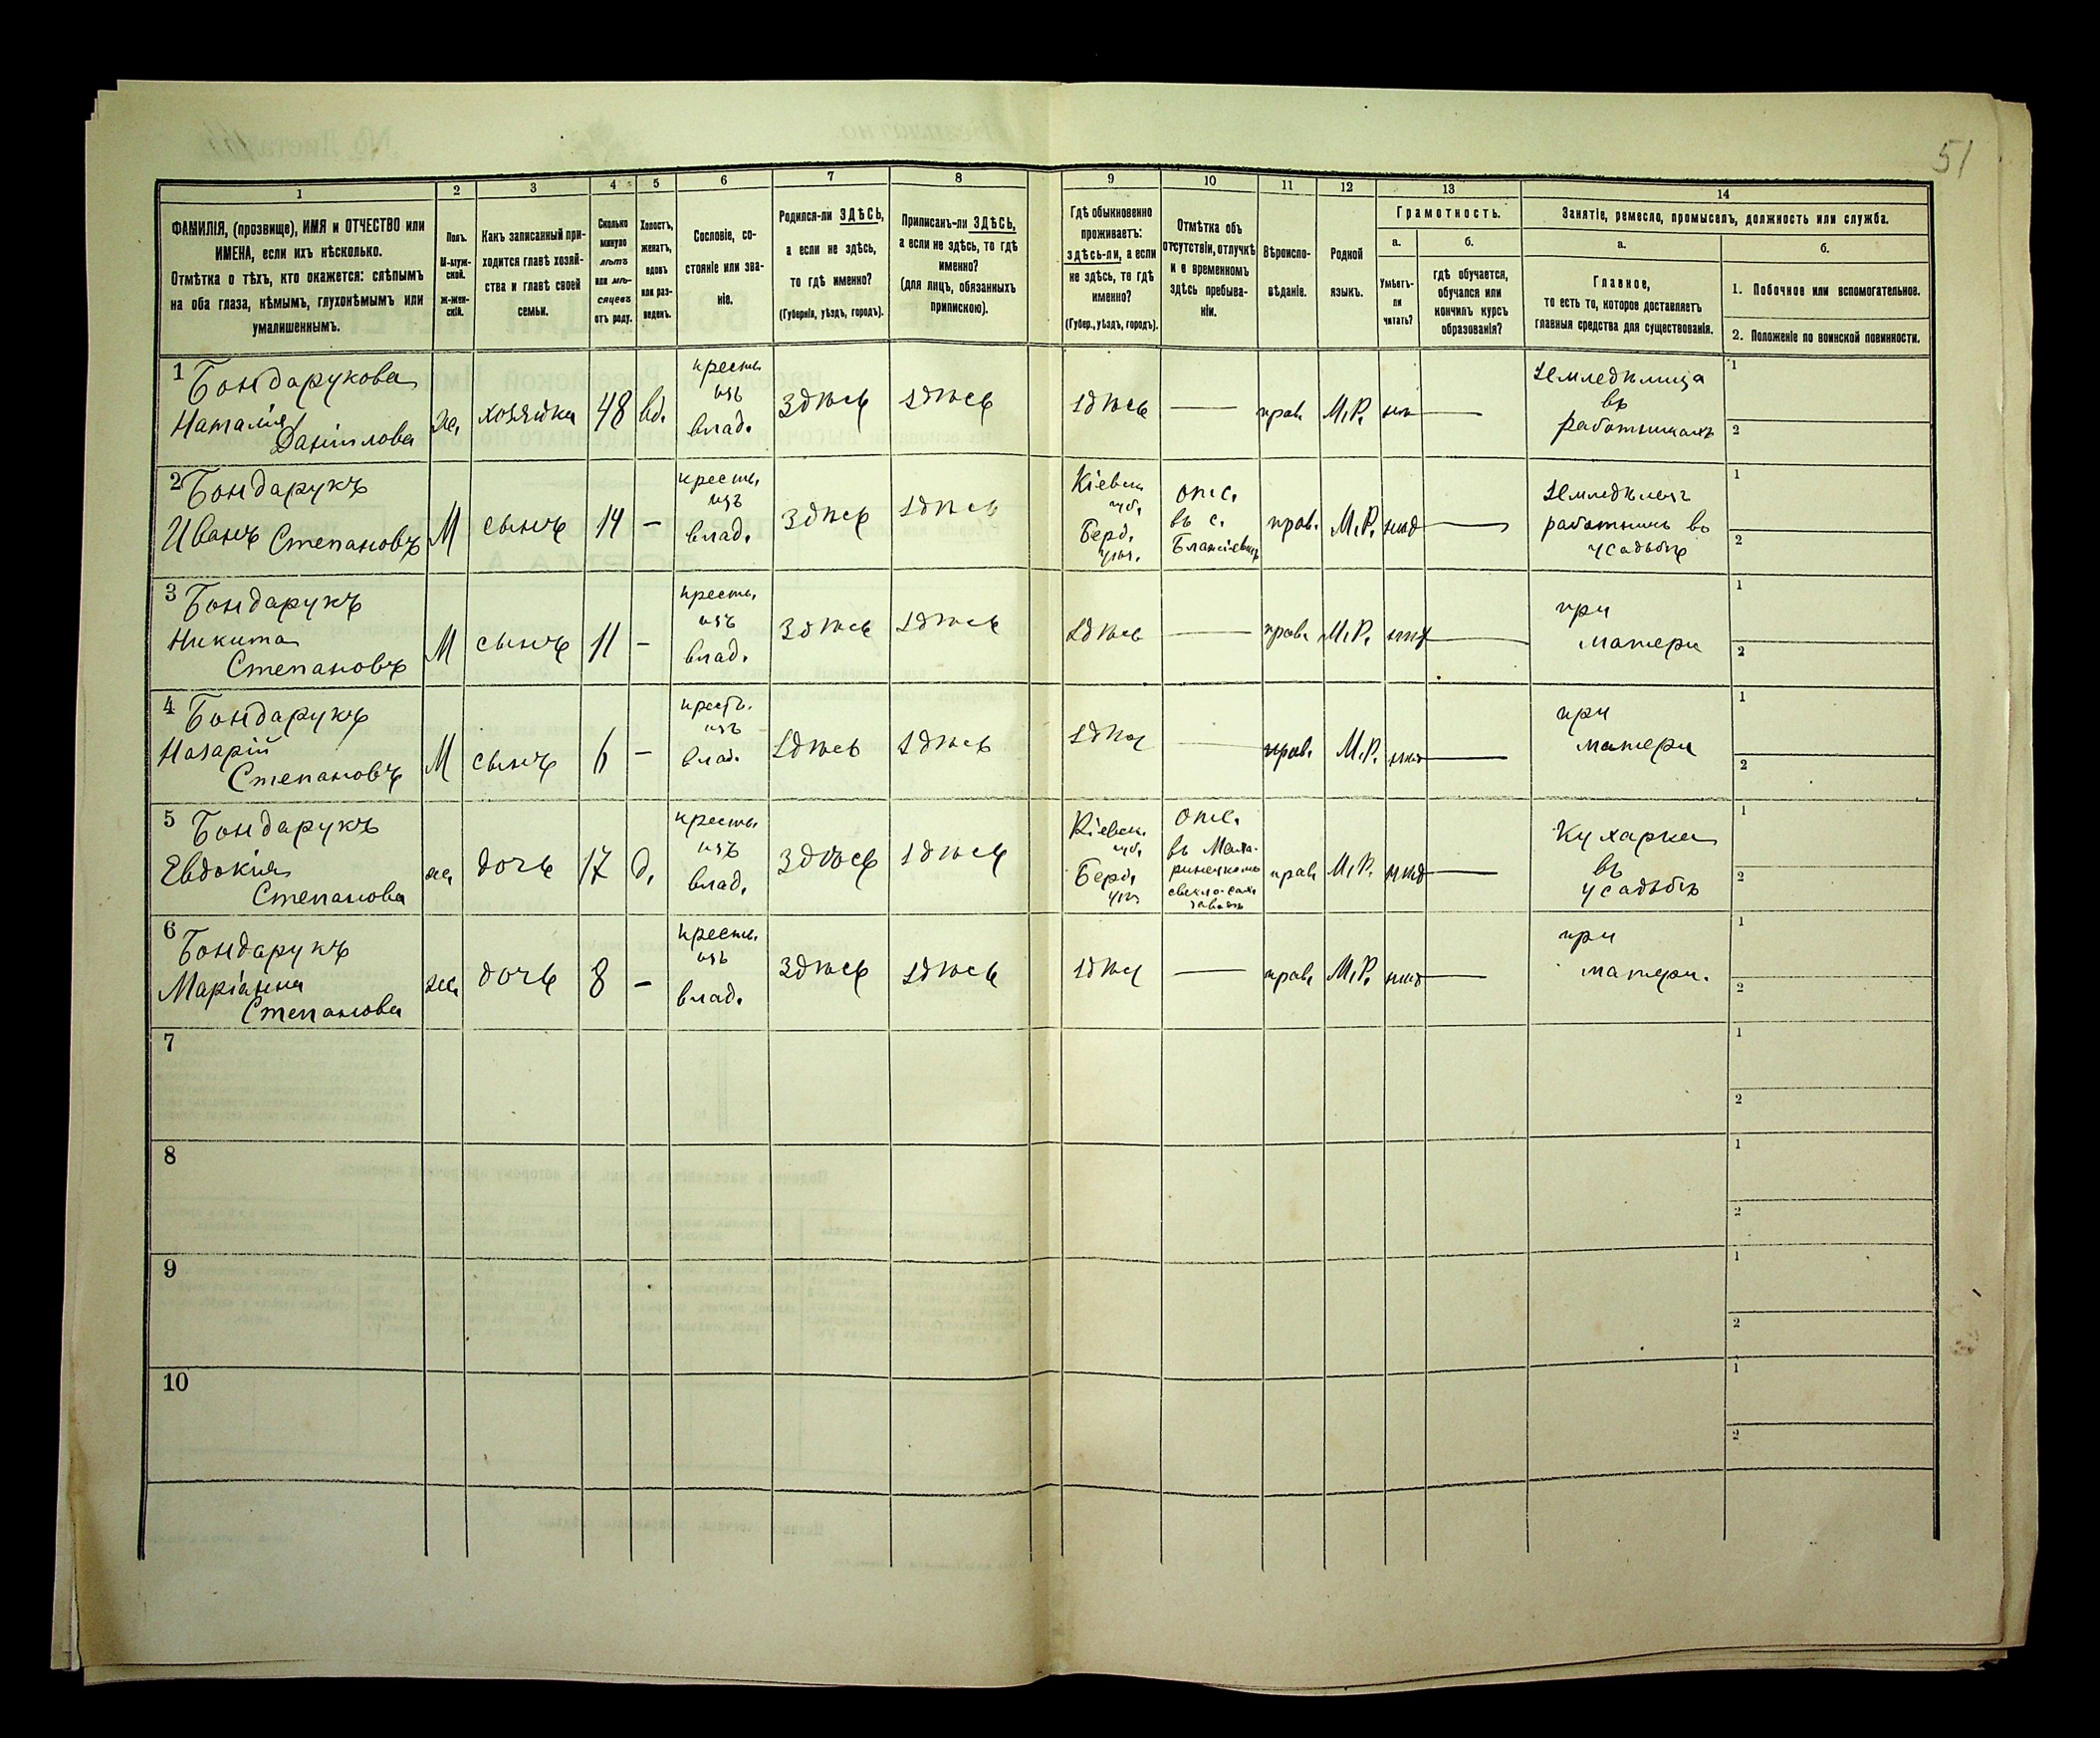 51
1 2 3 4 5 6 7 8 9 10 11 12 13 14
ФАМИЛІЯ, (прозвище), ИМЯ и ОТЧЕСТВО или
ИМЕНА, если ихъ нѣсколько.
Отмѣтка о тѣхъ, кто окажется: слѣпымъ
на оба глаза, нѣмымъ, глухонѣмымъ или
умалишеннымъ.
Полъ.
М-муж-
ской.
ж-жен-
скій.
Какъ записанный при-
ходится главѣ хозяй-
ства и главѣ своей
семьи.
Сколько
минуло
лѣтъ
или мѣ-
сяцевъ
отъ роду.
Холостъ,
женатъ,
вдовъ
или раз-
веденъ.
Сословіе, со-
стояніе или зва-
ніе.
Родился-ли ЗДѢСЬ,
а если не здѣсь,
то гдѣ именно?
(Губернія, уѣздъ, городъ).
Приписанъ-ли ЗДѢСЬ,
а если не здѣсь, то гдѣ
именно?
(для лицъ, обязанныхъ
припискою).
Гдѣ обыкновенно
проживаетъ:
здѣсь-ли, а если
не здѣсь, то гдѣ
именно?
(Губер., уѣздъ, городъ).
Отмѣтка объ
отсутствіи, отлучкѣ
и о временномъ
здѣсь пребыва-
ніи.
Вѣроиспо-
вѣданіе.
Родной
языкъ.
Грамотность.
а.
Умѣетъ-
ли
читать?
б.
гдѣ обучается,
обучался или
кончилъ курсъ
образованія?
Занятіе, ремесло, промыселъ, должность или служба.
а.
Главное,
то есть то, которое доставляетъ
главныя средства для существованія.
б.
1. Побочное или вспомогательное.
2. Положеніе по воинской повинности.
1 Бондарукова
Наталія
Даніилова
ж.
хозяйка
48
вд.
крестьн.
изъ
влад.
Здѣсь
здѣсь
здѣсь
—
прав.
М.Р.
нѣт —
земледѣлица
въ
работникахъ
1
2
2 Бондарукъ
Иванъ Степановъ
М
сынъ
14
-
крестьн.
изъ
влад.
Здѣсь
здѣсь
Кіевск.
губ.
Берд.
уѣз.
отс.
въ с.
прав.
М.Р.
нѣт —
земледѣлецъ
работникъ въ
усадьбѣ
1
2
3 Бондарукъ
Никита
Степановъ
М
сынъ
11
-
крестьн.
изъ
влад.
Здѣсь
здѣсь
здѣсь
—
прав.
М.Р.
нѣт —
при
матери
1
2
4 Бондарукъ
Назарій
Степановъ
М
сынъ
6
-
крестьн.
изъ
влад.
здѣсь
здѣсь
здѣсь
—
прав.
М.Р.
нѣт —
при
матери
1
2
5 Бондарукъ
Евдокія
Степанова
ж.
дочь
17
д.
крестьн.
изъ
влад.
Здѣсь
здѣсь
Кіевск.
губ.
Берд.
уѣз.
отс.
въ Маха-
ринецкомъ
свекло-сах.
заводѣ
прав.
М.Р.
нѣт —
Кухарка
въ
усадьбѣ
1
2
6 Бондарукъ
Маріанна
Степанова
ж.
дочь
8
-
крестьн.
изъ
влад.
Здѣсь
здѣсь
здѣсь
—
прав.
М.Р.
нѣт —
при
матери.
1
2
7
1
2
8
1
2
9
1
2
10
1
2